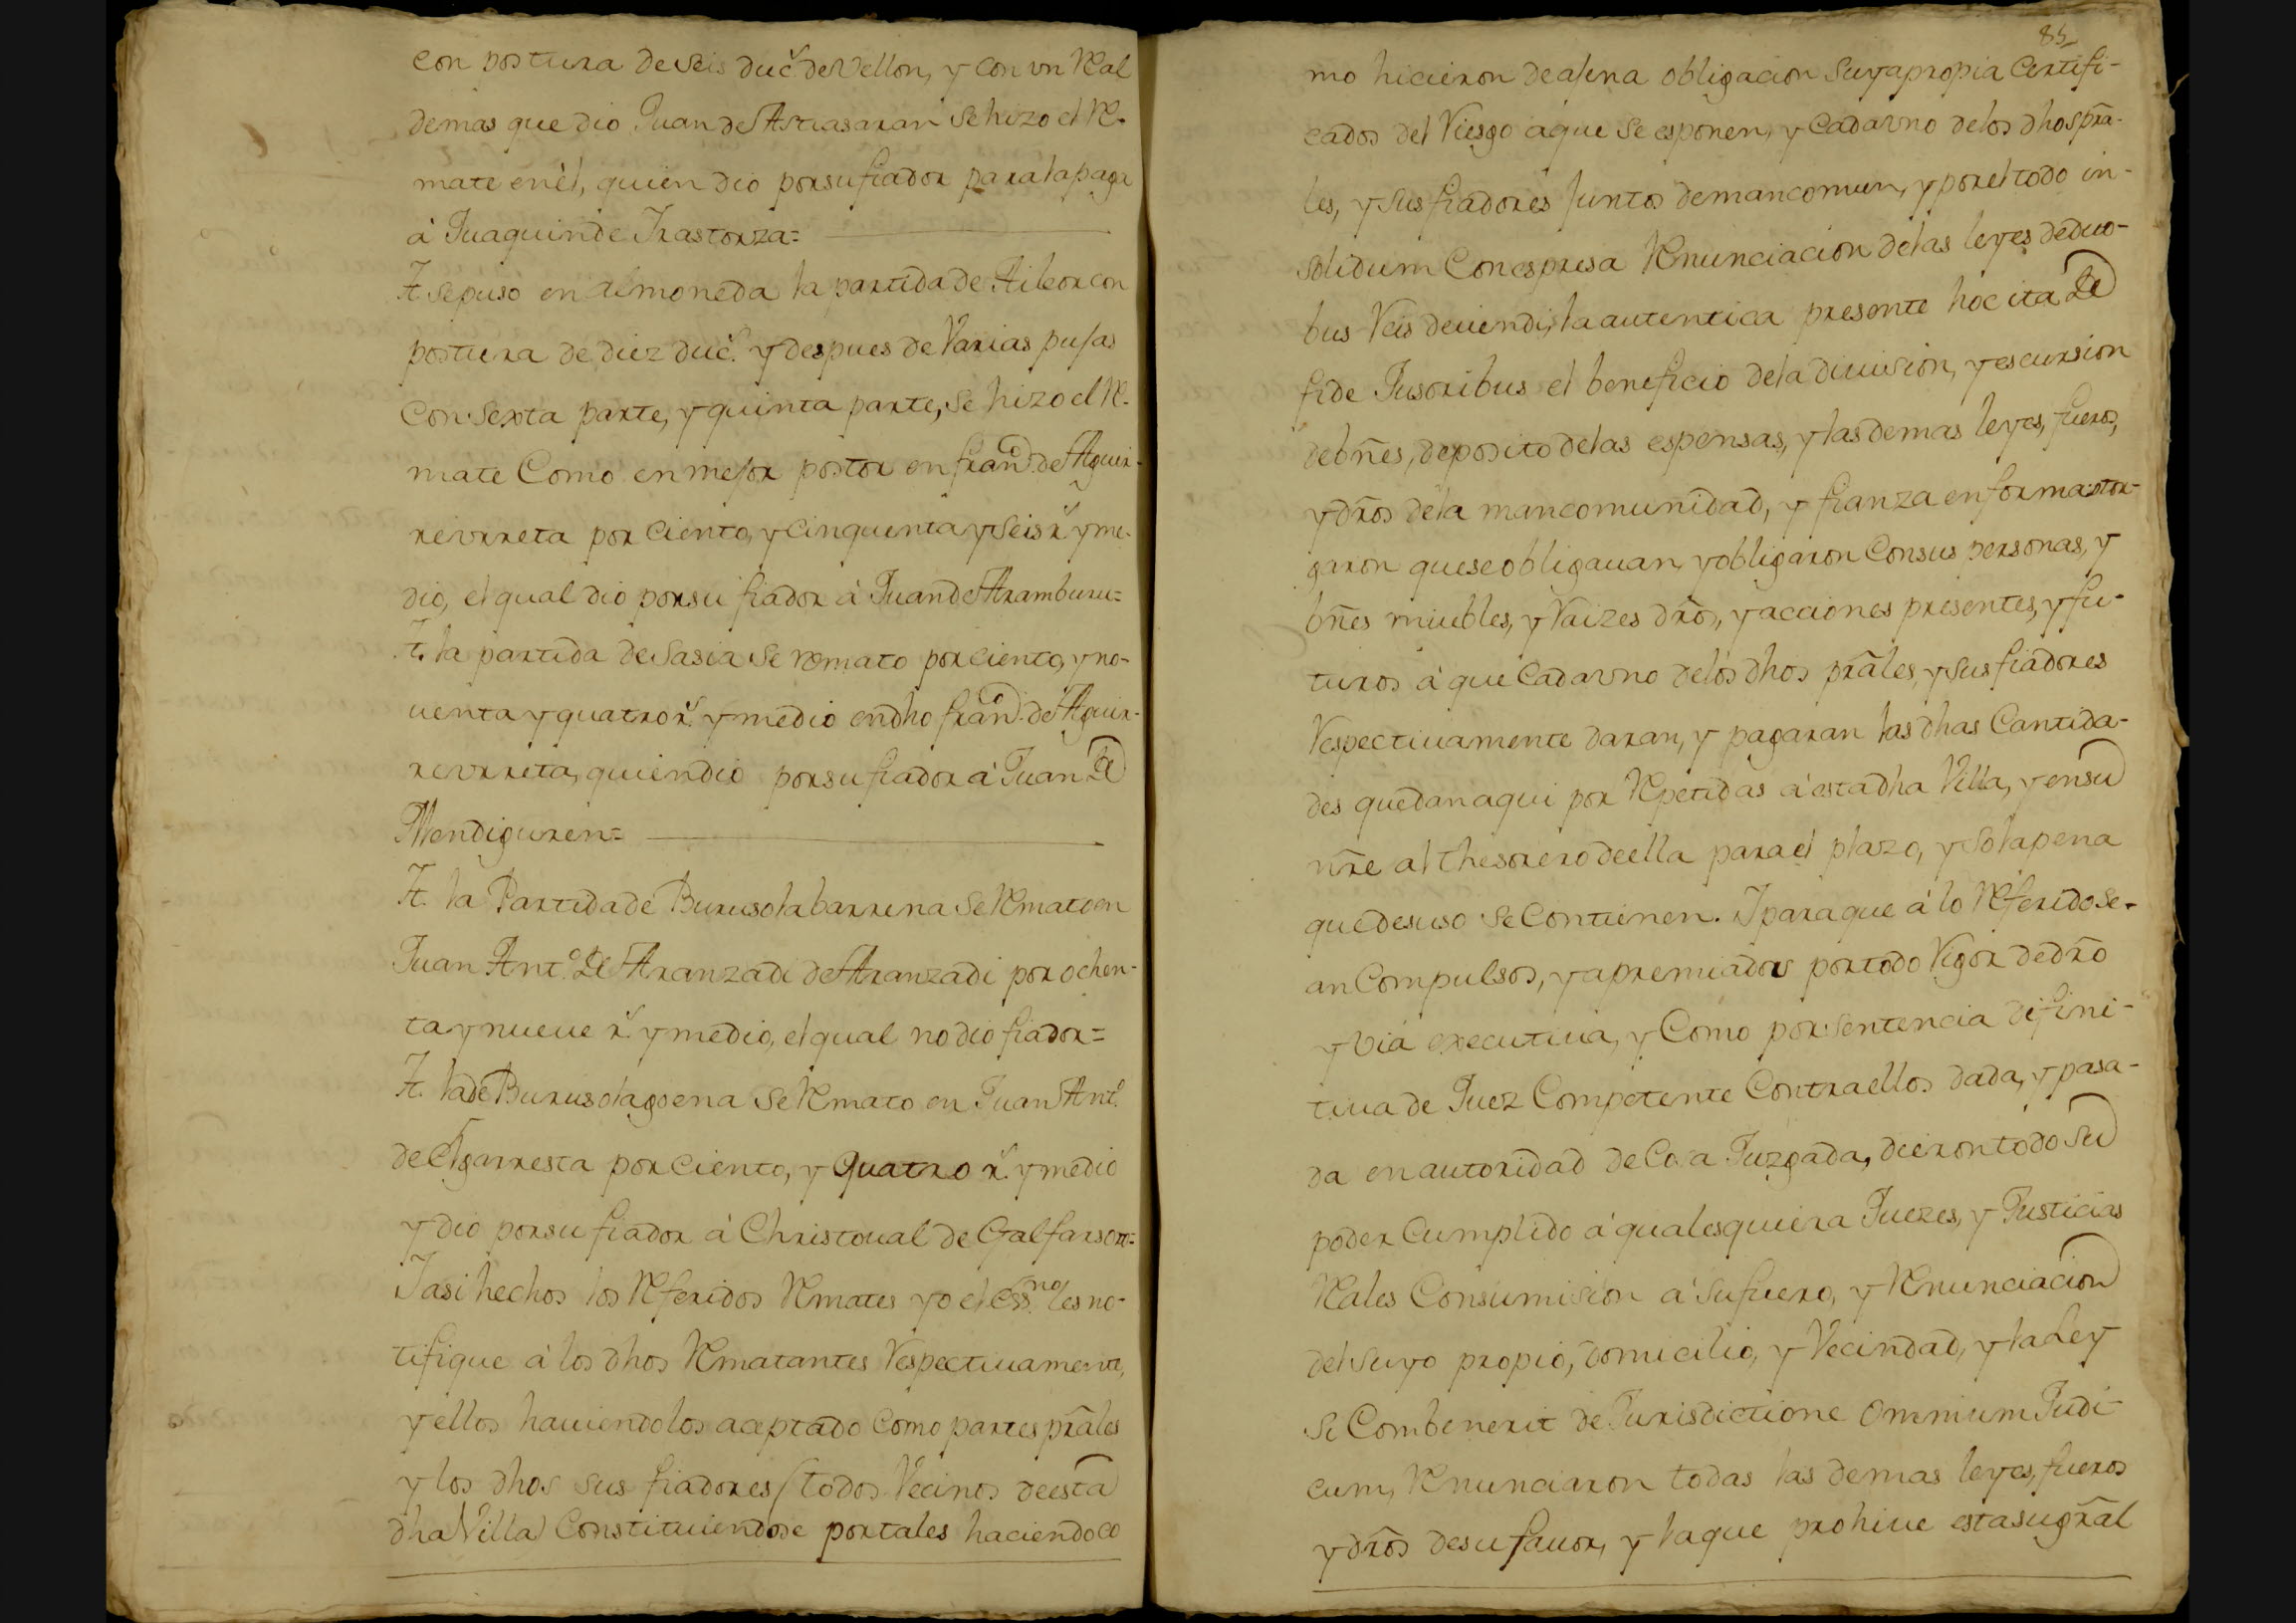 con postura de seis duc.s de Vellon, y con vn Real
demas que dio Juan de Astiasaran se hizo el Re-
mate en èl, quien dio por su fiador para la paga
à Juaquin de Irastorza=
It. se puso en almoneda la partida de Aileor con
postura de diez duc.s y despues de Varias pujas
con sexta parte, y quinta parte, se hizo el Re-
mate Como en mejor postor en fran.co de Aguir-
revrreta por Ciento, y Cinquenta y Seis r.s y me-
dio, el qual dio por su fiador à Juan de Aramburu=
It. la partida de Sasia se remato por ciento, y no-
uenta y quatro r.s y medio en dho fran.co de Aguir-
revrreta, quien dio por su fiador à Juan de
Mendiguren=
It. la Partida de Burusolabarrena se Remato en
Juan Ant.o de Aranzadi de Aranzadi por ochen-
ta y nueue r.s y medio, el qual no dio fiador=
It. la de Burusolagoena se Remato en Juan Ant.o
de Egarresta por Ciento, y Quatro r.s y medio
y dio por su fiador à Christoual de Galfarsoro=
I asi hechos los Referidos Remates yo el Ess.no les no-
tifique à los dhos Rematantes Respectiuamente,
y ellos hauiendolos aceptado como partes prãles
y los dhos sus fiadores (todos Vecinos de esta
dha Villa) Constituiendose por tales haciendo co
85
mo hicieron de ajena obligacion suya propia Certifi-
cados del Riesgo a que se esponen, y Cada vno de los dhos prã-
les, y sus fiadores Juntos de mancomun, y por el todo in-
solidum Con espresa Renunciacion de las leyes de duo-
bus Reis deuendi, la autentica presente hoc ita de
fide Jusoribus el beneficio de la diuision, y escursion
de bñes, deposito de las espensas, y las demas leyes, fueros,
y dr̃os de la mancomunidad, y fianza en forma: otor-
garon que se obligauan, y obligaron Con sus personas, y
bñes muebles, y Raizes dr̃os, y acciones presentes, y fu-
turos à que Cada vno de los dhos prãles, y sus fiadores
Respectiuamente daran, y pagaran las dhas Cantida-
des que dan aqui por Repetidas à esta dha Villa, y en su
nr̃e al thesorero de ella para el plazo, y so la pena
que de suso se Contienen. I para que à lo Referido se-
an Compulsos, y apremiados por todo Rigor de dr̃o
y via executiua, y Como por sentencia difini-
tiua de Juez Competente Contra ellos dada, y pasa-
da en autoridad de Cosa Juzgada, dieron todo su
poder Cumplido à qualesquiera Juezes, y Justicias
Reales Con sumision à su fuero, y Renunciacion
del suyo propio, domicilio, y Vecindad, y la Ley
Si Combenerit de Jurisdictione Omnium Judi-
cum, Renunciaron todas las demas leyes, fueros
y dr̃os de su fauor, y la que prohiue esta su gr̃al